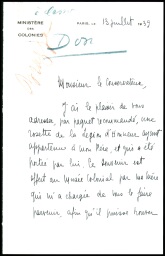 MINISTÈRE
DES
COLONIES
PARIS, LE 13 juillet 1934
Dos
Monsieur le Conservateur,
J'ai le plaisir de vous
adresser par paquet recommandé, une
rosette de la Légion d'Honneur ayant
appartenu à mon Père, et qui a été
portée par lui. Ce souvenir est
offert au Musée Colonial par ma Mère
qui m'a chargé de vous le faire
parvenir, afin qu'il puisse trouver